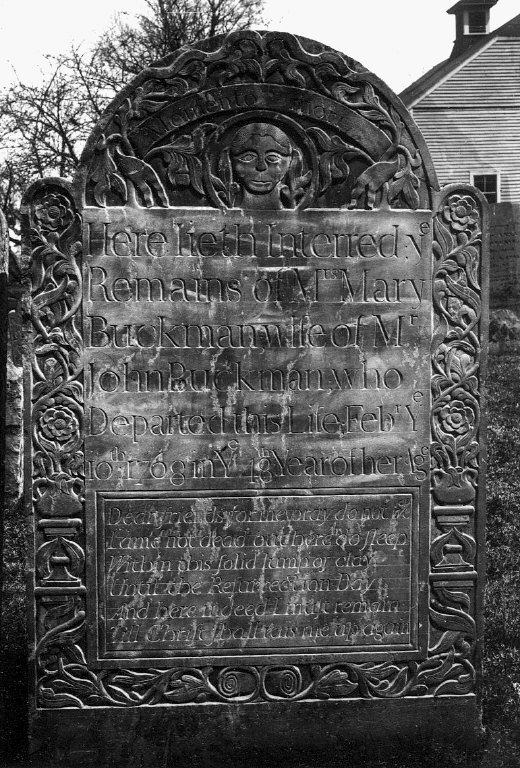 Memento Mori
Here lieth Interred yᵉ
Remains of Mʳˢ Mary
Buckman wife of Mʳ
John Buckman who
Departed this Life Febʳʸ Yᵉ
10ᵗʰ 1768 in Yᵉ Year of her Age
Dear friends for me pray do not
I am not dead but here do sleep
Within this solid lump of clay
Until the Resurrection Day
And here indeed I must remain
Till Christ shall rais me up again